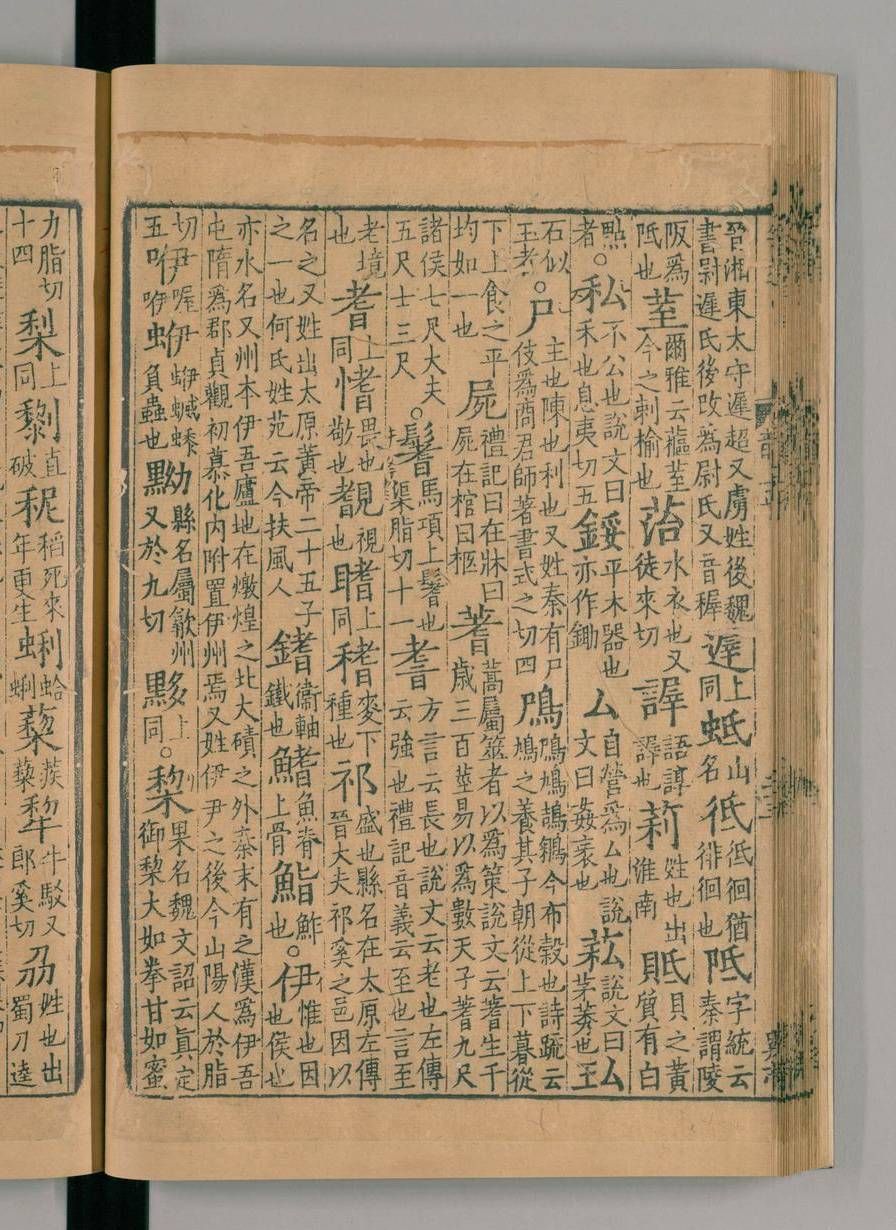 晉湘東太守遲超又虜姓後魏書尉遲氏後改爲尉氏又音稺遟上同蚳山名彽彽徊猶徘徊也阺字統云秦謂陵
阪爲阺也荎爾雅云蓲荎今之刺榆也菭水衣也又徒來切謘語諄謘也姓也出淮南貾貝之黃質有白
點者。私不公也說文曰禾也息夷切五鋖平木器也亦作鋤厶自營爲厶也說文曰姦衺也䓲說文曰茅莠也玜
石似玉者。尸主也陳也利也又姓秦有尸伎爲商君師著書式之切四鳲鳲鳩鴶鵴今布穀也詩疏云鳲鳩之養其子朝從上下暮從
下上食之平均如一也屍禮記曰在牀曰屍在棺曰柩蓍蒿屬筮者以爲策說文云蓍生千歲三百莖易以爲數天子蓍九尺
諸侯七尺大夫五尺士三尺。鬐馬項上鬐也渠脂切十一耆方言云長也說文云老也左傳云強也禮記音義云至也言至
老境也上同愭畏也敬也視也䁒上同麥下種也祁盛也縣名在太原左傳晉大夫祁奚之邑因以
名之又姓出太原黃帝二十五子之一也何氏姓苑云今扶風人衞軸鐵也鰭魚脊上骨鮨鮓也。伊惟也因也侯也
亦水名又州本伊吾廬地在燉煌之北大磧之外秦末有之漢爲伊吾屯隋爲郡貞觀初慕化內附置伊州焉又姓伊尹之後今山陽人於脂
切五咿喔咿蛜蛜蝛負蟲也黝縣名屬歙州又於九切黟上同。棃果名魏文詔云真定御棃大如拳甘如蜜
力脂切十四梨上同直破秜稻死來年更生蜊蛤蜊蔾蒺蔾犂牛駁又郎奚切刕姓也出蜀刀逵